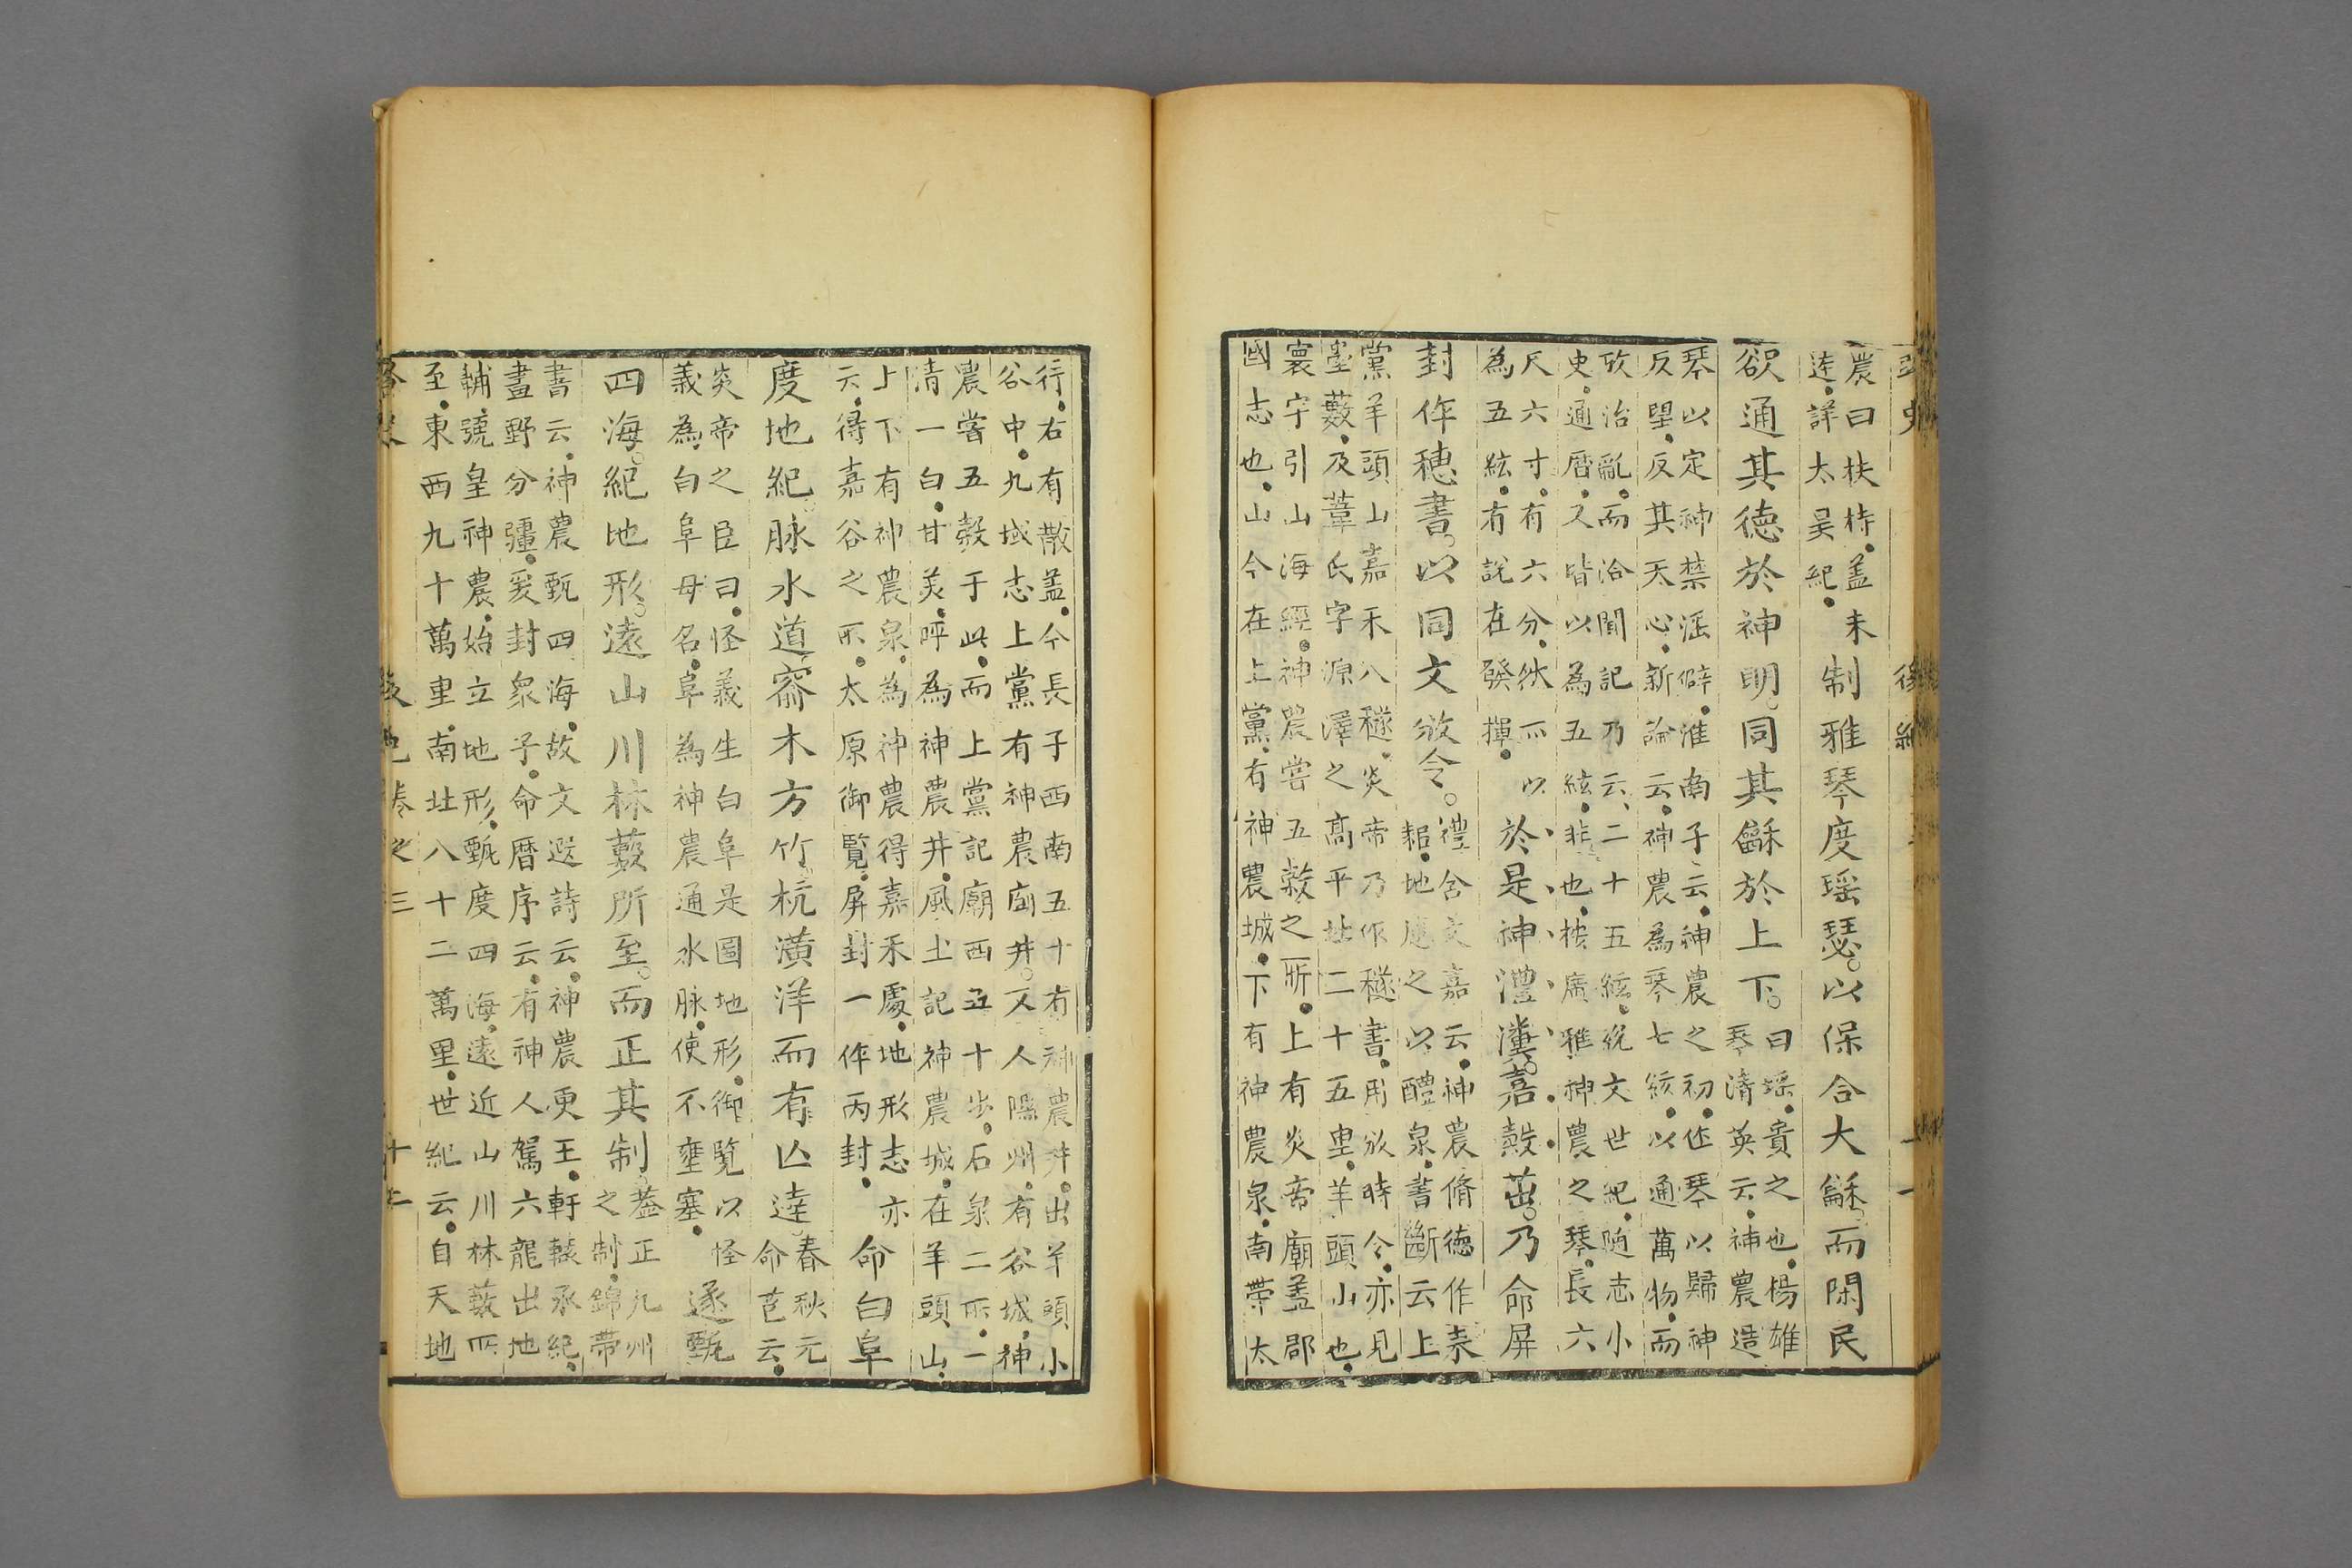 農曰扶持盖未
逹詳太昊紀
制雅琴度瑶瑟以保合大龢而閑民
欲通其德於神明同其龢於上下
曰瑶貴之也楊雄
琴清英云神農造
琴以定神禁滛僻淮南子云神農之初作琴以歸神
反朢反其天心新論云神農為琴七絃以通萬物而
攷治亂而洽聞記乃云二十五絃統文世紀随志小
史通暦又皆以為五絃非也桉廣雅神農之琴長六
尺六寸有六分然而以
為五絃有說在發揮
於是神澧瀵嘉糓茁乃命屏
封作穗書以同文攽令
禮含文嘉云神農脩德作耒
耜地應之以醴泉書斷云上
黨羊頭山嘉禾八穟炎帝乃作穟書用攽時令亦見
墨藪及葦氏字源澤之髙平北二十五里羊頭山也
寰宇引山海經神農嘗五糓之所上有炎帝廟盖郡
國志也山今在上黨有神農城下有神農泉南帶太
行右有散盖今長子西南五十有神農井出羊頭小
谷中九域志上黨有神農廟井又人隰州有谷城神
農嘗五糓于此而上黨記廟西五十步石泉二所一
清一白甘美呼為神農井風土記神農城在羊頭山
上下有神農泉為神農得嘉禾處地形志亦
云得嘉谷之所太原御覽屏封一作丙封
命白阜
度地紀脉水道木方竹杭潢洋而有亾逹
春秋元
命苞云
炎帝之臣曰怪義生白阜是圖地形御覧以怪
義為白阜母名阜為神農通水脉使不壅塞
遂甄
四海紀地形逺山川林藪所至而正其制
葢正九州
之制錦帶
書云神農甄四海故文遐詩云神農更王軒轅承紀
畫野分疆爰封衆子命暦序云有神人駕六龍出地
輔號皇神農始立地形甄度四海逺近山川林藪所
至東西九十萬里南北八十二萬里世紀云自天地
卷之三
十二